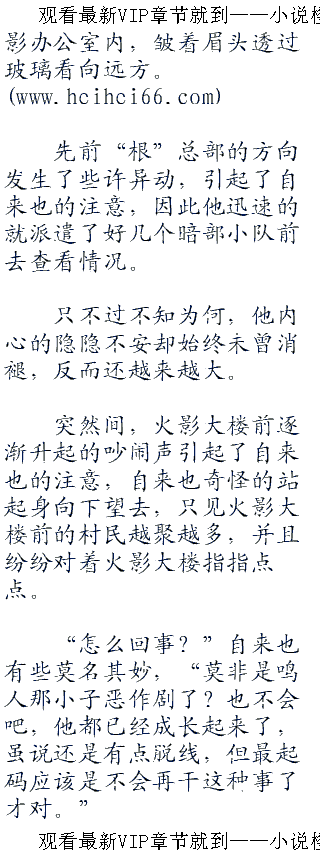 观看最新VIP章节就到——小说
影办公室内，皱着眉头透过
玻璃看向远方。
(www.hcihci66.com)
先前“根”总部的方向
发生了些许异动，引起了自
来也的注意，因此他迅速的
就派遣了好几个暗部小队前
去查看情况。
只不过不知为何，他内
心的隐隐不安却始终未曾消
褪，反而还越来越大。
突然间，火影大楼前逐
渐升起的吵闹声引起了自来
也的注意，自来也奇怪的站
起身向下望去，只见火影大
楼前的村民越聚越多，并且
纷纷对着火影大楼指指点
点。
“怎么回事？”自来也
有些莫名其妙，“莫非是鸣
人那小子恶作剧了？也不会
吧，他都已经成长起来了，
虽说还是有点脱线，但最起
码应该是不会再干这种事了
才对。”
观看最新VIP章节就到——小说